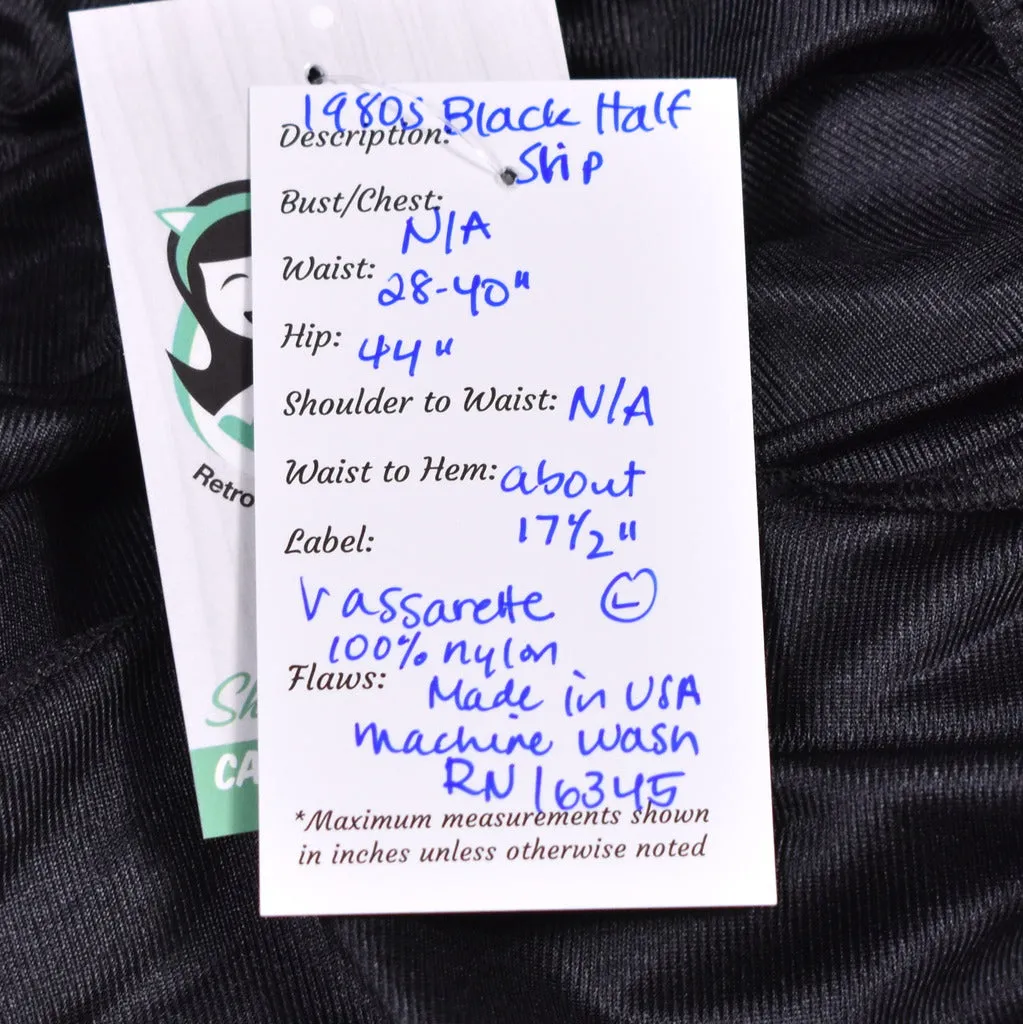 1980s Black Half
Description:
Slip
Bust/Chest:
N/A
Waist: 28-40"
Hip: 44"
Shoulder to Waist: N/A
Waist to Hem: about
17 1/2"
Label:
Vassarette L
100% nylon
Flaws:
Made in USA
machine wash
RN 16345
*Maximum measurements shown
in inches unless otherwise noted
Retro
Sh
CA